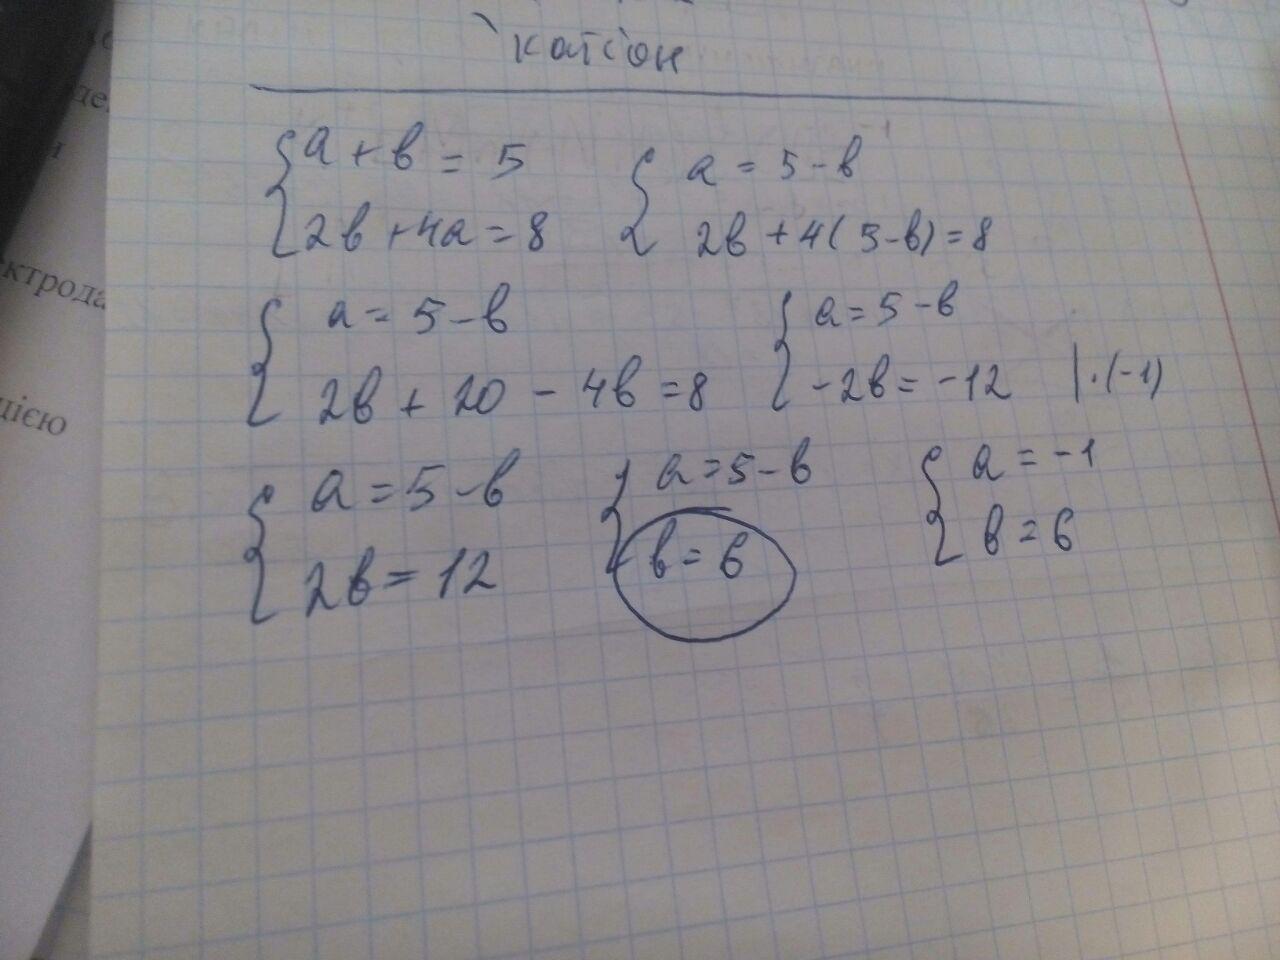 катіон
{ a + b = 5
2b + 4a = 8
{ a = 5 - b
2b + 4(5 - b) = 8
{ a = 5 - b
2b + 20 - 4b = 8
{ a = 5 - b
-2b = -12 | · (-1)
{ a = 5 - b
2b = 12
{ a = 5 - b
b = 6
{ a = -1
b = 6
ктрода
цією